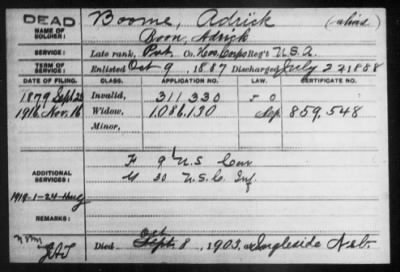 DEAD
NAME OF SOLDIER: Boome, Adrick (alias)
Boon, Adrick
SERVICE: Late rank, Pvt. Co. Hos. Corps Reg't U.S.A.
TERM OF SERVICE: Enlisted Oct 9, 1887 Discharged July 22 1888
DATE OF FILING. CLASS. APPLICATION NO. LAW. CERTIFICATE NO.
1879 Sept 23 Invalid, 311,330
1916 Nov. 16 Widow, 1,086,130 859,548
Minor,
ADDITIONAL SERVICES: F 9 U.S. Cav
20 U.S.C. Inf.
REMARKS:
Died Sept. Oct 8, 1903, at Ingleside Neb.